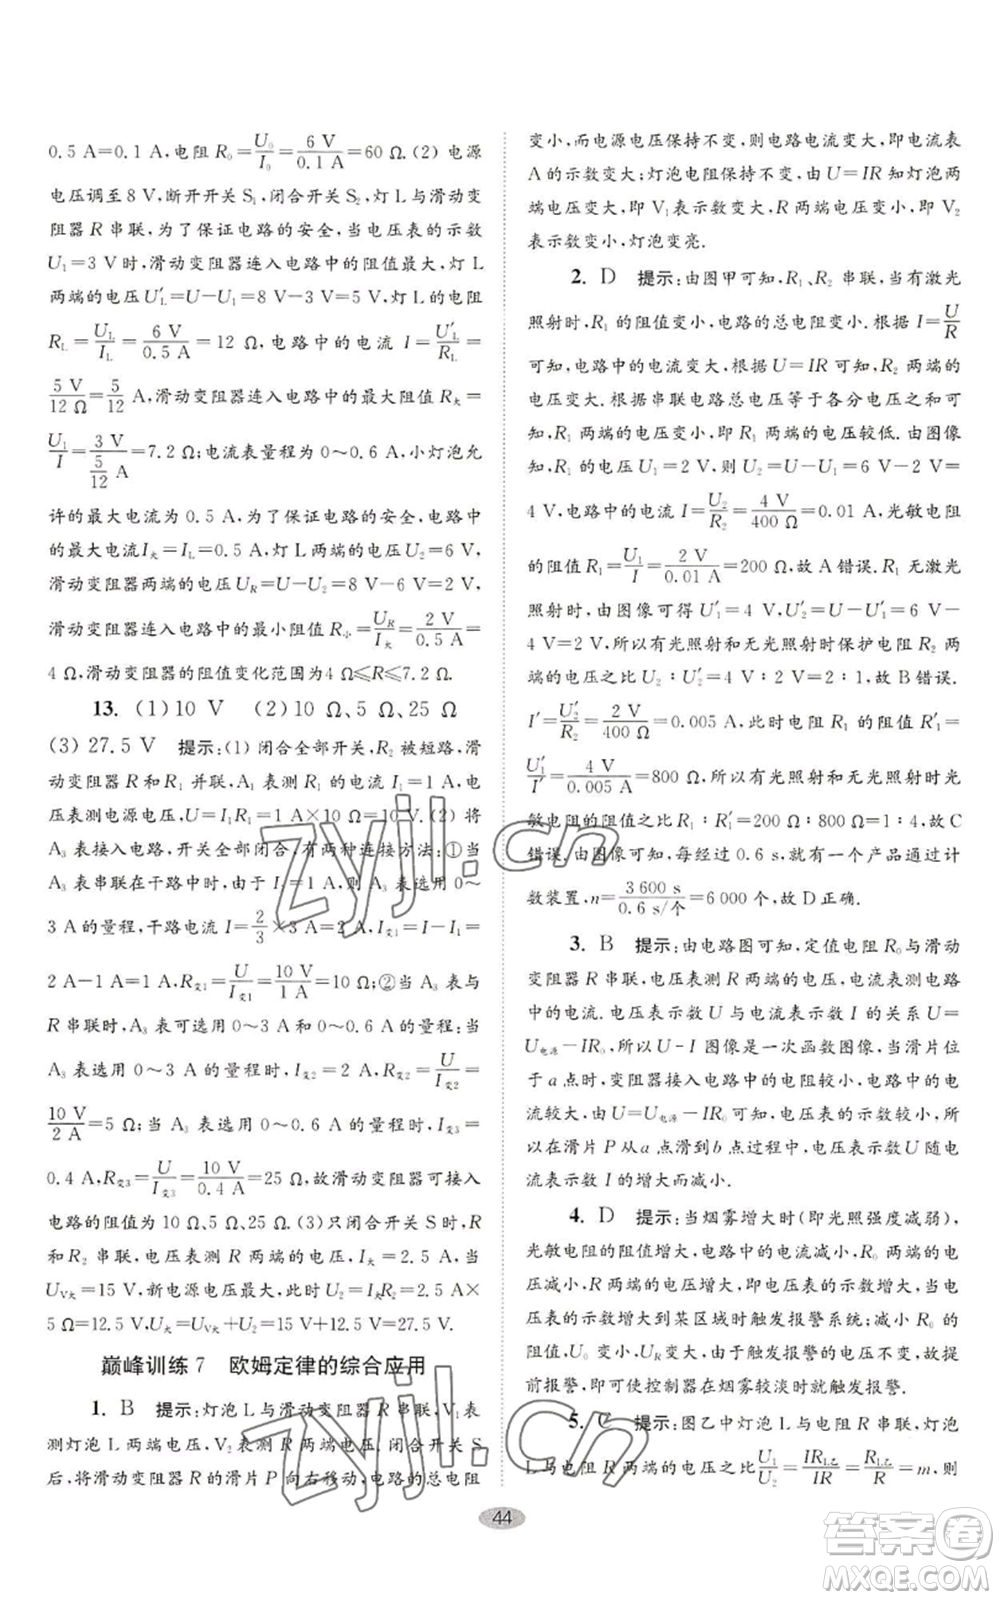 0.5 A=0.1 A,电阻 R₀=U₀/I₀=6 V/0.1 A=60 Ω.(2) 电源
电压调至 8 V,断开开关 S₁,闭合开关 S₂,灯 L 与滑动变
阻器 R 串联,为了保证电路的安全,当电压表的示数
U₁=3 V 时,滑动变阻器连入电路中的阻值最大,灯 L
两端的电压 U′L=U−U₁=8 V−3 V=5 V,灯 L 的电阻
RL=UL/IL=6 V/0.5 A=12 Ω,电路中的电流 I=U′L/RL=
5 V/12 Ω=5/12 A,滑动变阻器连入电路中的最大阻值 R大=
U₁/I=3 V/(5/12 A)=7.2 Ω;电流表量程为 0～0.6 A,小灯泡允
许的最大电流为 0.5 A,为了保证电路的安全,电路中
的最大电流I大=IL=0.5 A,灯 L 两端的电压 U₂=6 V,
滑动变阻器两端的电压 UR=U−U₂=8 V−6 V=2 V,
滑动变阻器连入电路中的最小阻值 R小=UR/I大=2 V/0.5 A=
4 Ω,滑动变阻器的阻值变化范围为4 Ω≤R≤7.2 Ω.
13. (1) 10 V (2) 10 Ω、5 Ω、25 Ω
(3) 27.5 V 提示:(1) 闭合全部开关,R₂ 被短路,滑
动变阻器 R 和 R₁ 并联,A₁ 表测 R₁ 的电流 I₁=1 A,电
压表测电源电压,U=I₁R₁=1 A×10 Ω=10 V.(2) 将
A₃ 表接入电路,开关全部闭合,有两种连接方法:①当
A₃ 表串联在干路中时,由于 I>I₁,则 A₃ 表选用 0～
3 A 的量程,干路电流 I=2/3×3 A=2 A,I变1=I−I₁=
2 A−1 A=1 A,R变1=U/I变1=10 V/1 A=10 Ω;②当 A₃ 表与
R 串联时,A₃ 表可选用 0～3 A 或 0～0.6 A 的量程;当
A₃ 表选用 0～3 A 的量程时,I变2=2 A,R变2=U/I变2=
10 V/2 A=5 Ω;当 A₃ 表选用 0～0.6 A 的量程时,I变3=
0.4 A,R变3=U/I变3=10 V/0.4 A=25 Ω,故滑动变阻器可接入
电路的阻值为 10 Ω、5 Ω、25 Ω.(3) 只闭合开关 S 时,R
和 R₂ 串联,电压表测 R 两端的电压,I大=2.5 A,
UV大=15 V,新电源电压最大,此时 U₂=I大R₂=2.5 A×
5 Ω=12.5 V,U大=UV大+U₂=15 V+12.5 V=27.5 V.
巅峰训练 7 欧姆定律的综合应用
1. B 提示:灯泡 L 与滑动变阻器 R 串联,V₁ 表
测灯泡 L 两端电压,V₂ 表测 R 两端电压.闭合开关 S
后,将滑动变阻器 R 的滑片 P 向右移动,电路的总电阻
变小,而电源电压保持不变,则电路电流变大,即电流表
A 的示数变大;灯泡电阻保持不变,由 U=IR 知灯泡两
端电压变大,即 V₁ 表示数变大,R 两端电压变小,即 V₂
表示数变小,灯泡变亮.
2. D 提示:由图甲可知,R₁、R₂ 串联,当有激光
照射时,R₁ 的阻值变小,电路的总电阻变小.根据 I=U/R
可知,电路中的电流变大,根据 U=IR 可知,R₂ 两端的
电压变大.根据串联电路总电压等于各分电压之和可
知,R₁ 两端的电压变小,即 R₁ 两端的电压较低.由图像
可知,R₁ 的电压 U₁=2 V,则 U₂=U−U₁=6 V−2 V=
4 V,电路中的电流 I=U₂/R₂=4 V/400 Ω=0.01 A,光敏电阻
的阻值 R₁=U₁/I=2 V/0.01 A=200 Ω,故 A 错误.R₁ 无激光
照射时,由图像可得 U′₁=4 V,U′₂=U−U′₁=6 V−
4 V=2 V,所以有光照射和无光照射时保护电阻 R₂ 两
端的电压之比 U₂∶U′₂=4 V∶2 V=2∶1,故 B 错误.
I′=U′₂/R₂=2 V/400 Ω=0.005 A,此时电阻 R₁ 的阻值 R′₁=
U′₁/I′=4 V/0.005 A=800 Ω,所以有光照射和无光照射时光
敏电阻的阻值之比 R₁∶R′₁=200 Ω∶800 Ω=1∶4,故 C
错误.由图像可知,每经过 0.6 s,就有一个产品通过计
数装置,n=3 600 s/0.6 s/个=6 000 个,故 D 正确.
3. B 提示:由电路图可知,定值电阻 R₀与滑动
变阻器 R 串联,电压表测 R 两端的电压,电流表测电路
中的电流.电压表示数 U 与电流表示数 I 的关系 U=
U电源−IR₀,所以 U-I 图像是一次函数图像.当滑片位
于 a 点时,变阻器接入电路中的电阻较小,电路中的电
流较大,由 U=U电源−IR₀ 可知电压表的示数较小,所
以在滑片 P 从 a 点滑到 b 点过程中,电压表示数 U 随电
流表示数 I 的增大而减小.
4. D 提示:当烟雾增大时(即光照强度减弱),
光敏电阻的阻值增大,电路中的电流减小,R₀ 两端的电
压减小,R 两端的电压增大,即电压表的示数增大,当电
压表示数增大到某区域时触发报警系统.减小 R₀ 的
阻值,U₀减小,UR变大,可使电压表示数增大,从而提
前报警,即可使控制器在烟雾较淡时就触发报警.
5. C 提示:图乙中灯泡 L 与电阻 R 串联,灯泡
L 与电阻 R 两端的电压之比 U₁/U₂=IRL乙/IR=RL乙/R=m,则
44
zyjl.cn
zyjl.cn
答案圈
MXQE.COM